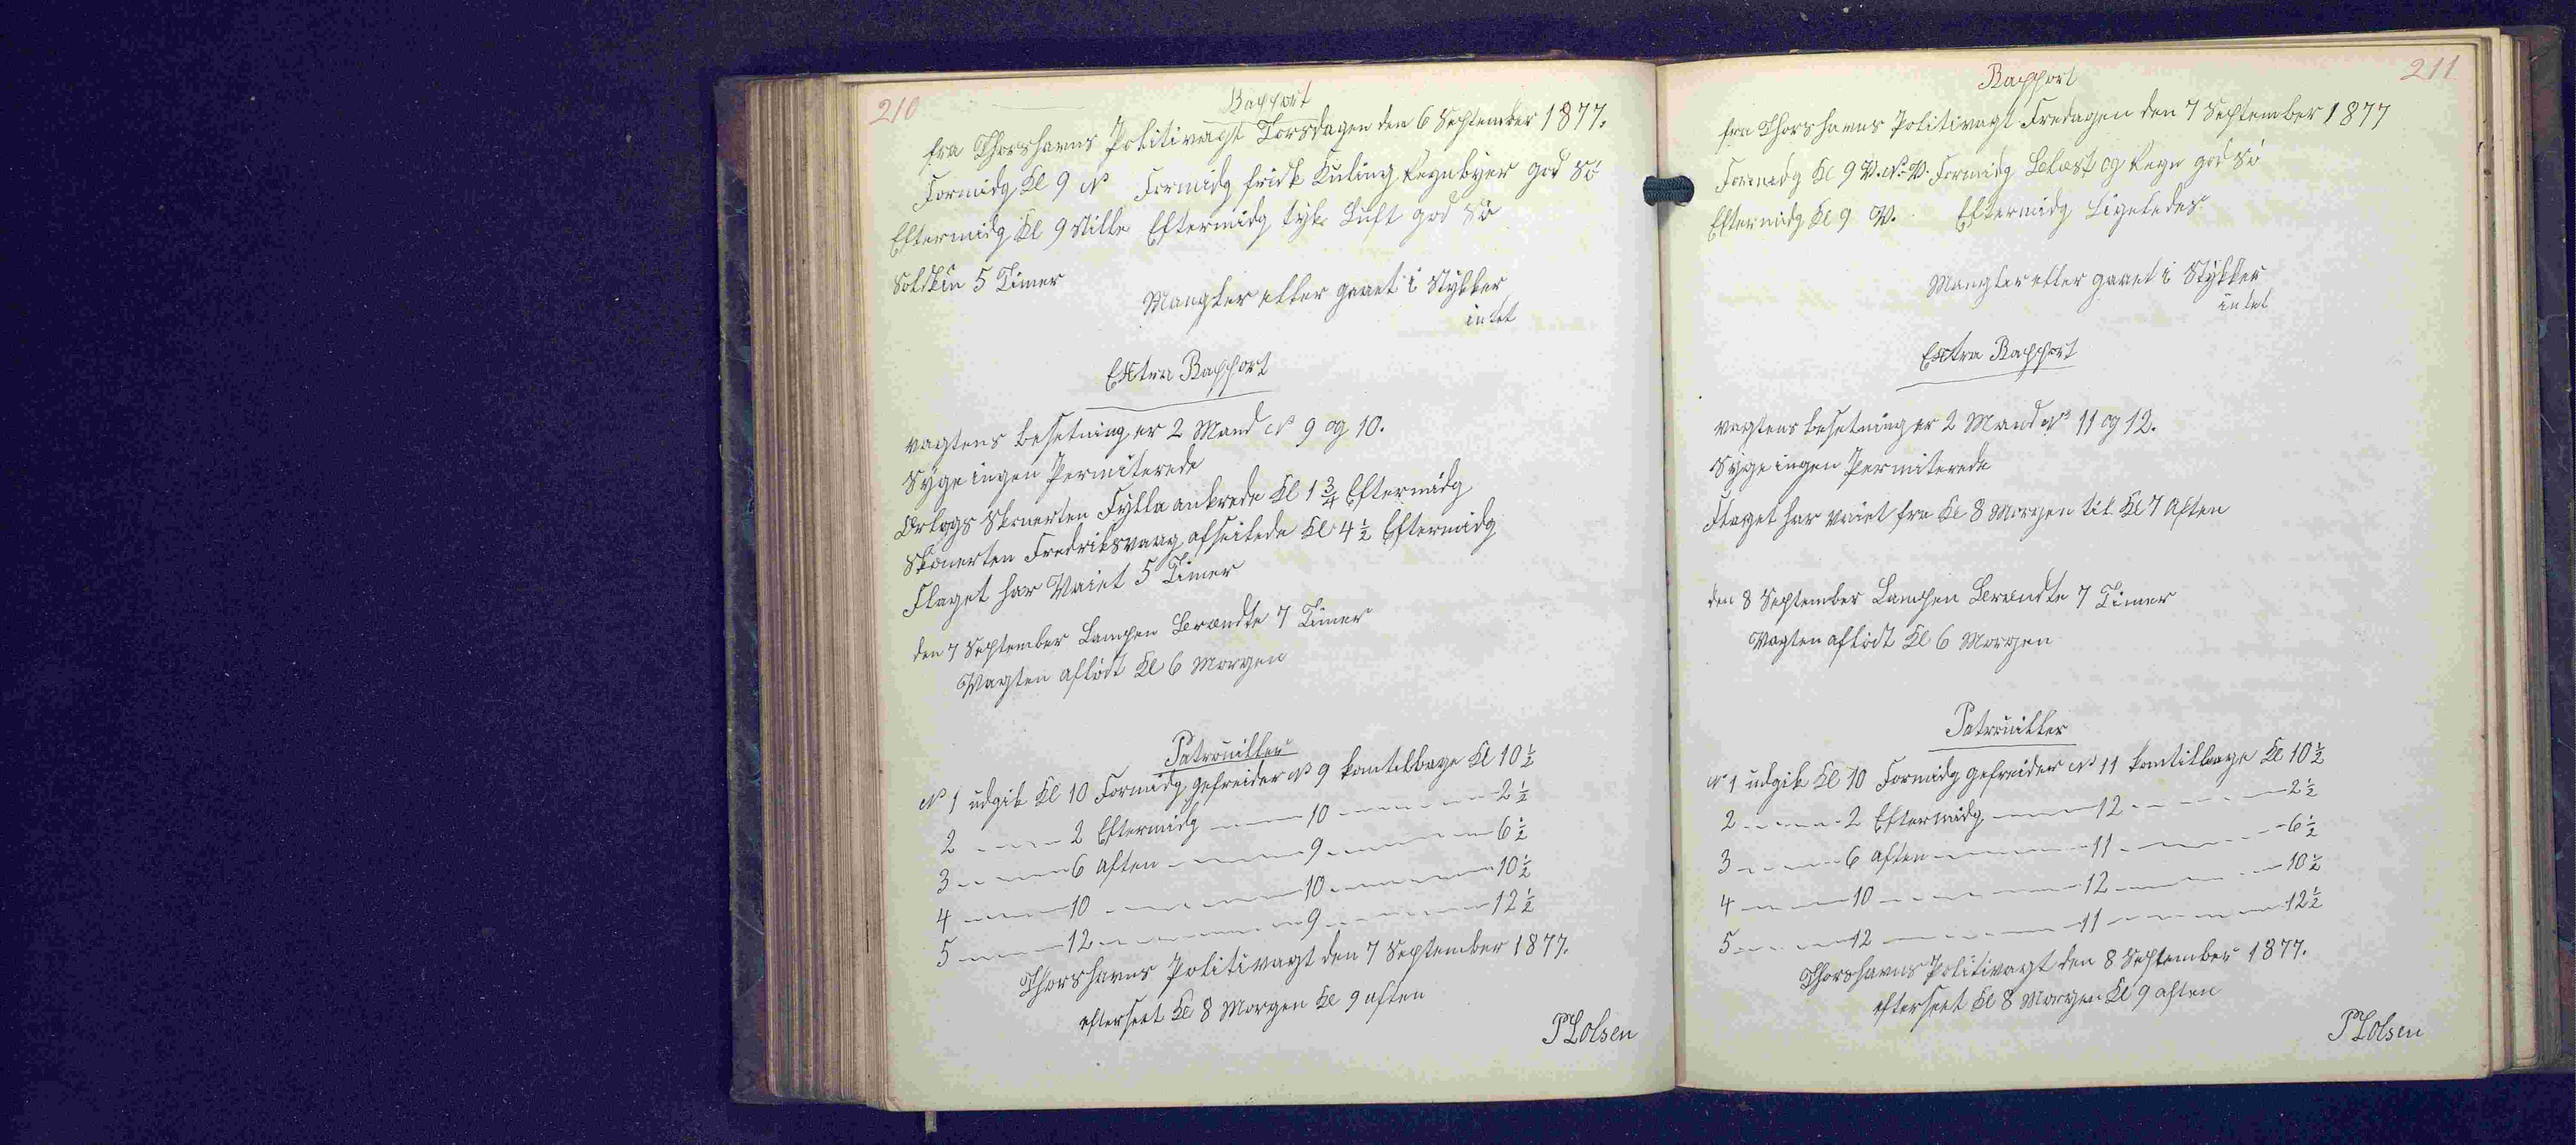 210
Rapport
fra Thorshavns Politivagt Torsdagen den 6 September 1877.
Formidg Kl 9 N Formidg frisk Kuling Regnbyer god Sö
Eftermidg Kl 9 Stille Eftermidg tyk Luft god Sö
Solskin 5 Timer
Mangler eller gaaet i Stykker
intet
Extra Rapport
vagtens besetning er 2 Mand No 9 og 10.
Syge ingen Permiterede
Orlogs Skonerten Fylla ankrede Kl 1 3/4 Eftermidg
Skonerten Fredriksvaag afseilede Kl 4 1/2 Eftermidg
Flaget har Vaiet 5 Timer
den 7 September Lampen Brændte 7 Timer
Vagten aflöst Kl 6 Morgen
Patrouiller
No 1 udgik Kl 10 Formidg gefreider No 9 kom tilbage Kl 10 1/2
2 - - - - 2 Eftermidg - - - 10 - - - - 2 1/2
3 - - - - 6 Aften - - - - 9 - - - - 6 1/2
4 - - - - 10 - - - - 10 - - - - 10 1/2
5 - - - - 12 - - - - 9 - - - - 12 1/2
Thorshavns Politivagt den 7 September 1877.
efterseet Kl 8 Morgen Kl 9 aften
P Lolsen
211
Rapport
fra Thorshavns Politivagt Fredagen den 7 September 1877
Formidg Kl 9 V.N.V. Formidg Blæst og Regn god Sö
Eftermidg Kl 9 V. Eftermidg Ligeledes
Mangler eller gaaet i Stykker
intet
Extra Rapport
vagtens besetning er 2 Mand No 11 og 12.
Syge ingen Permiterede
Flaget har vaiet fra Kl 8 Morgen til Kl 7 Aften
den 8 September Lampen Brændte 7 Timer
Vagten aflöst Kl 6 Morgen
Patrouiller
No 1 udgik Kl 10 Formidg gefreider No 11 kom tilbage Kl 10 1/2
2 - - - - 2 Eftermidg - - - 12 - - - - 2 1/2
3 - - - - 6 Aften - - - - 11 - - - - 6 1/2
4 - - - - 10 - - - - 12 - - - - 10 1/2
5 - - - - 12 - - - - 11 - - - - 12 1/2
Thorshavns Politivagt den 8 September 1877.
efterseet Kl 8 Morgen Kl 9 aften
P Lolsen